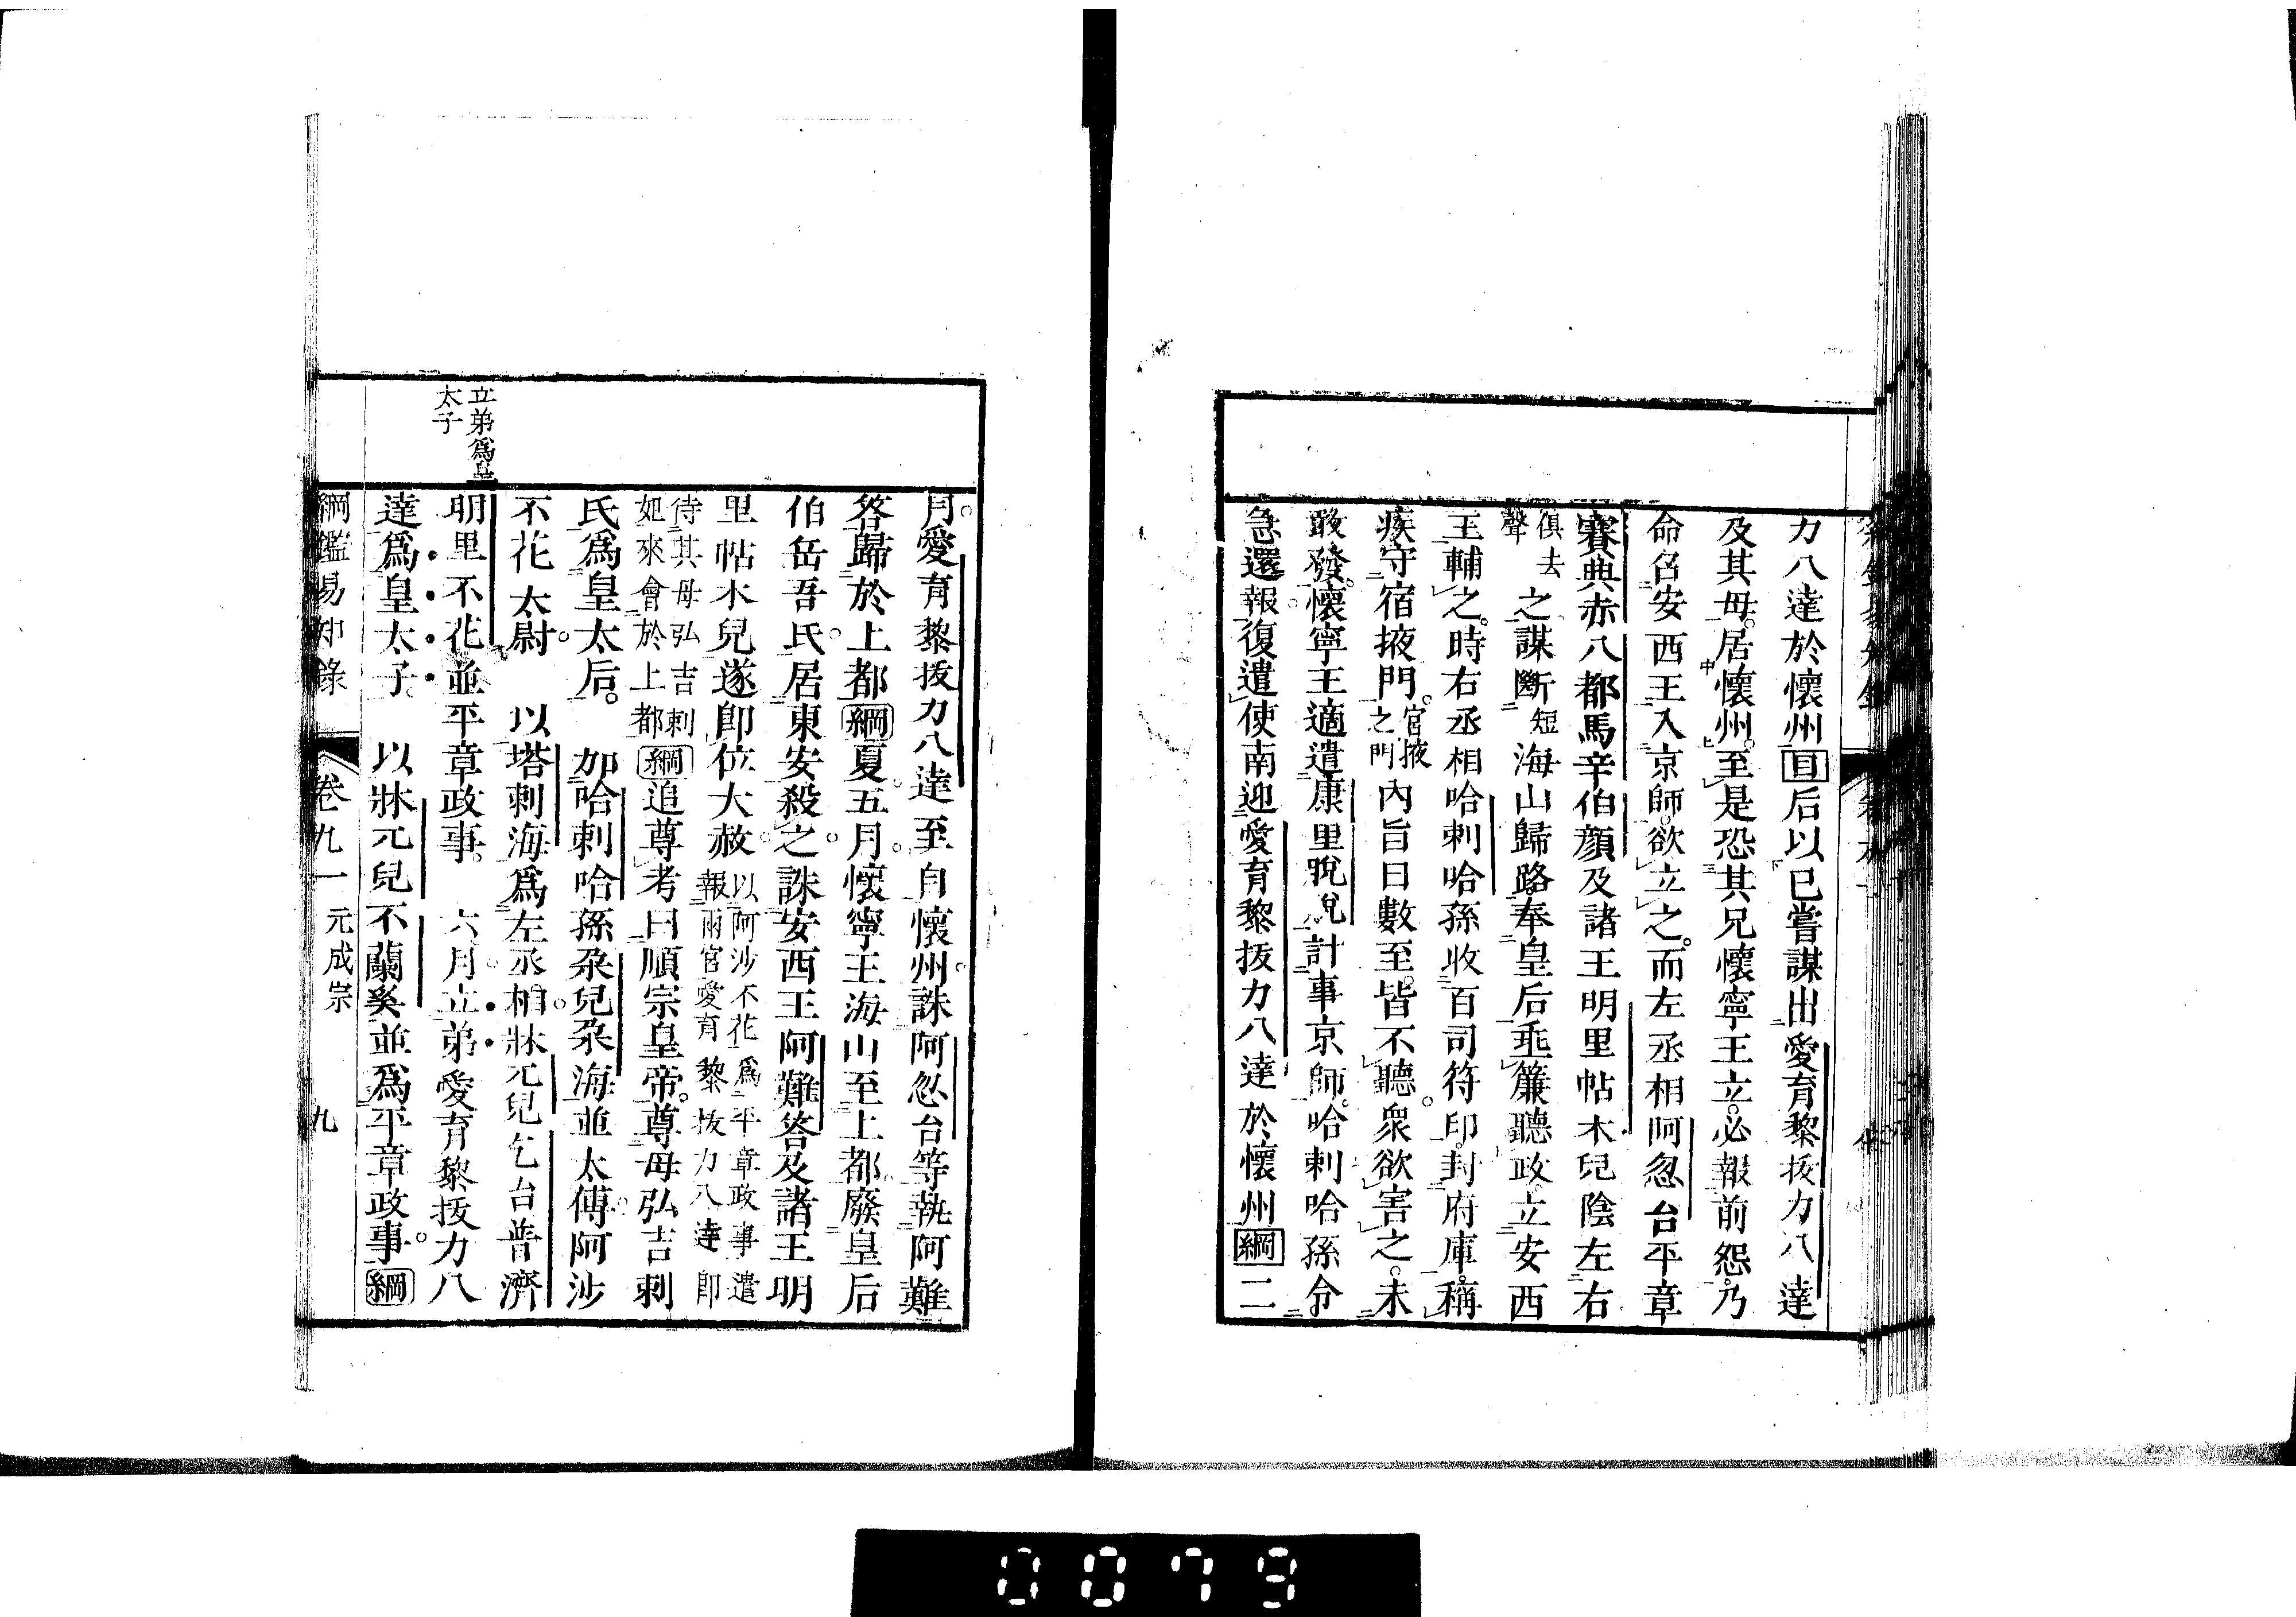 力八達於懷州目后以已嘗謀出愛育黎拔力八達
及其母居懷州至是恐其兄懷寧王立必報前怨乃
命召安西王入京師欲立之而左丞相阿忽台平章
賽典赤八都馬辛伯顔及諸王明里帖木兒陰左右
俱去聲之謀斷短海山歸路奉皇后垂簾聽政立安西
王輔之時右丞相哈剌哈孫收百司符印封府庫稱
疾守宿掖門宮掖之門內旨日數至皆不聽衆欲害之未
敢發懷寧王適遣康里脫脫計事京師哈剌哈孫令
急還報復遣使南迎愛育黎拔力八達於懷州綱二
月愛育黎拔力八達至自懷州誅阿忽台等執阿難
答歸於上都綱夏五月懷寧王海山至上都廢皇后
伯岳吾氏居東安殺之誅安西王阿難答及諸王明
里帖木兒遂卽位大赦以阿沙不花爲平章政事遣
報兩宮愛育黎拔力八達卽
侍其母弘吉剌
氏來會於上都綱追尊考曰順宗皇帝尊母弘吉剌
氏爲皇太后 加哈剌哈孫朶兒朶海並太傅阿沙
不花太尉 以塔剌海爲左丞相牀兀兒乞台普濟
明里不花並平章政事 六月立弟愛育黎拔力八
達爲皇太子 以牀兀兒不蘭奚並爲平章政事綱
立弟爲皇
太子
綱鑑易知錄 卷九一 元成宗 九
0079